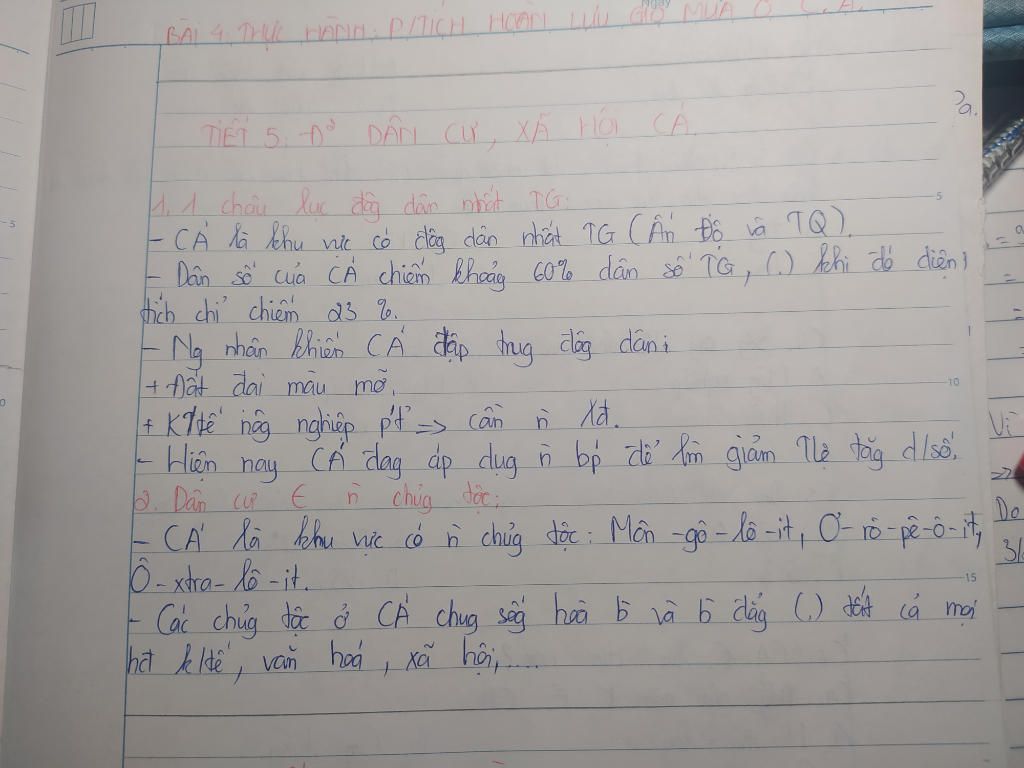 BÀI 4. THỰC HÀNH: P/TÍCH HOÀN LƯU GIÓ MÙA Ở C.A.
Ngày
TIẾT 5. Đ² DÂN CƯ, XÃ HỘI CÁ.
1. 1 châu lục đôg dân nhất TG:
- CÁ là khu vực có đôg dân nhất TG (Ấn Độ và TQ).
- Dân số của CÁ chiếm khoảg 60% dân số TG, (.) khi đó diện
tích chỉ chiếm 23 %.
- Ng nhân khiến CÁ tập trug đôg dân:
+ Đất đai màu mỡ.
+ K/tế nôg nghiệp p't² => cần ñ Xđ.
- Hiện nay CÁ đag áp dụg ñ bp' để lm giảm Tlệ tăg d/số.
2. Dân cư ∈ ñ chủg tộc:
- CÁ là khu vực có ñ chủg tộc: Môn-gô-lô-it, Ơ-rô-pê-ô-it,
Ô-xtra-lô-it.
- Các chủg tộc ở CÁ chug sốg hoà b̀ và b̀ đẳg (.) tất cả mọi
hđ k/tế, văn hoá, xã hội,....
5
10
15
3a.
Vì
=>
Do